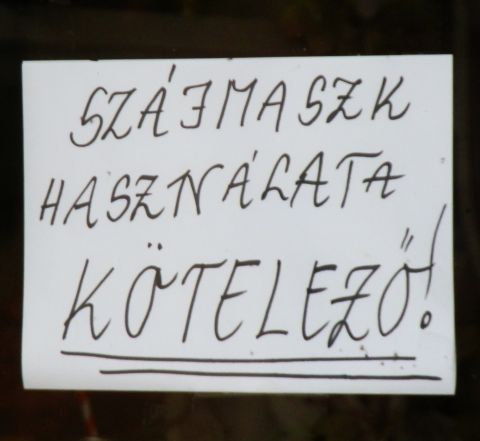 SZÁJMASZK
HASZNÁLATA
KÖTELEZŐ!